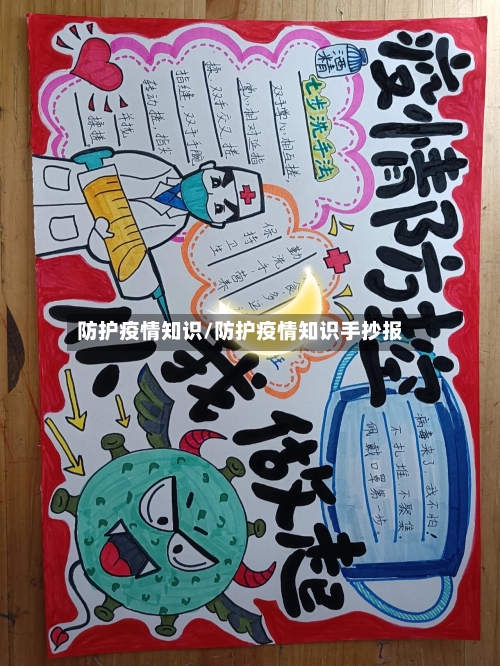 疫情防控
从我做起
酒精
七步洗手法
双手掌心相互搓,
掌心相对
搓 双手交叉 搓
指缝 双手手腕
转动 搓 指尖
揉搓
保持卫生
勤洗手
营养
防护疫情知识/防护疫情知识手抄报
病毒来了,我不怕!
不扎堆,不聚集.
佩戴口罩第一步